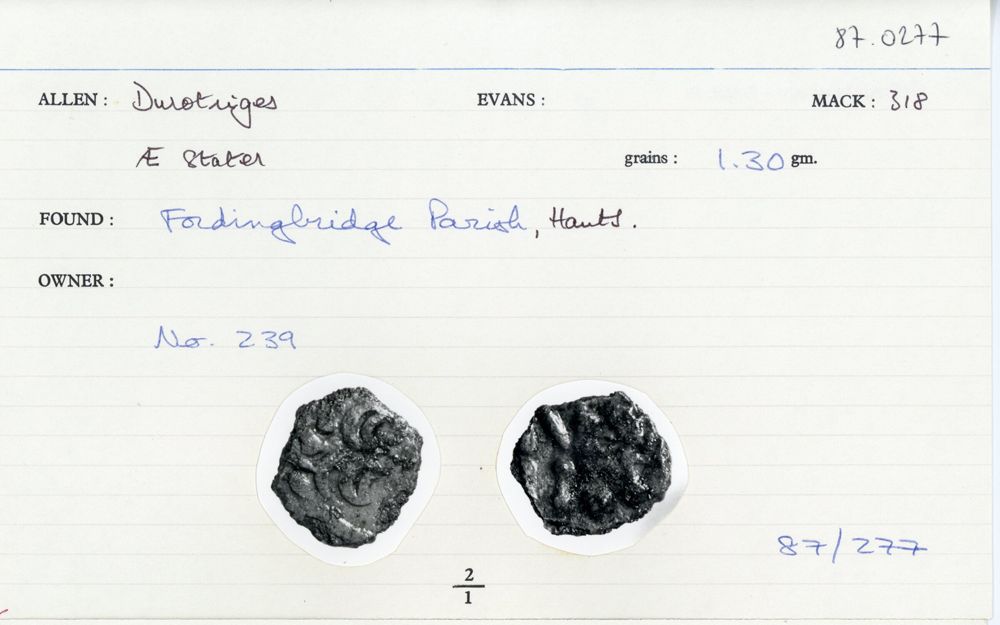 87.0277
ALLEN : Durotriges EVANS : MACK : 318
Æ Stater grains : 1.30 gm.
FOUND : Fordingbridge Parish, Hants.
OWNER :
No. 239
87/277
2
1